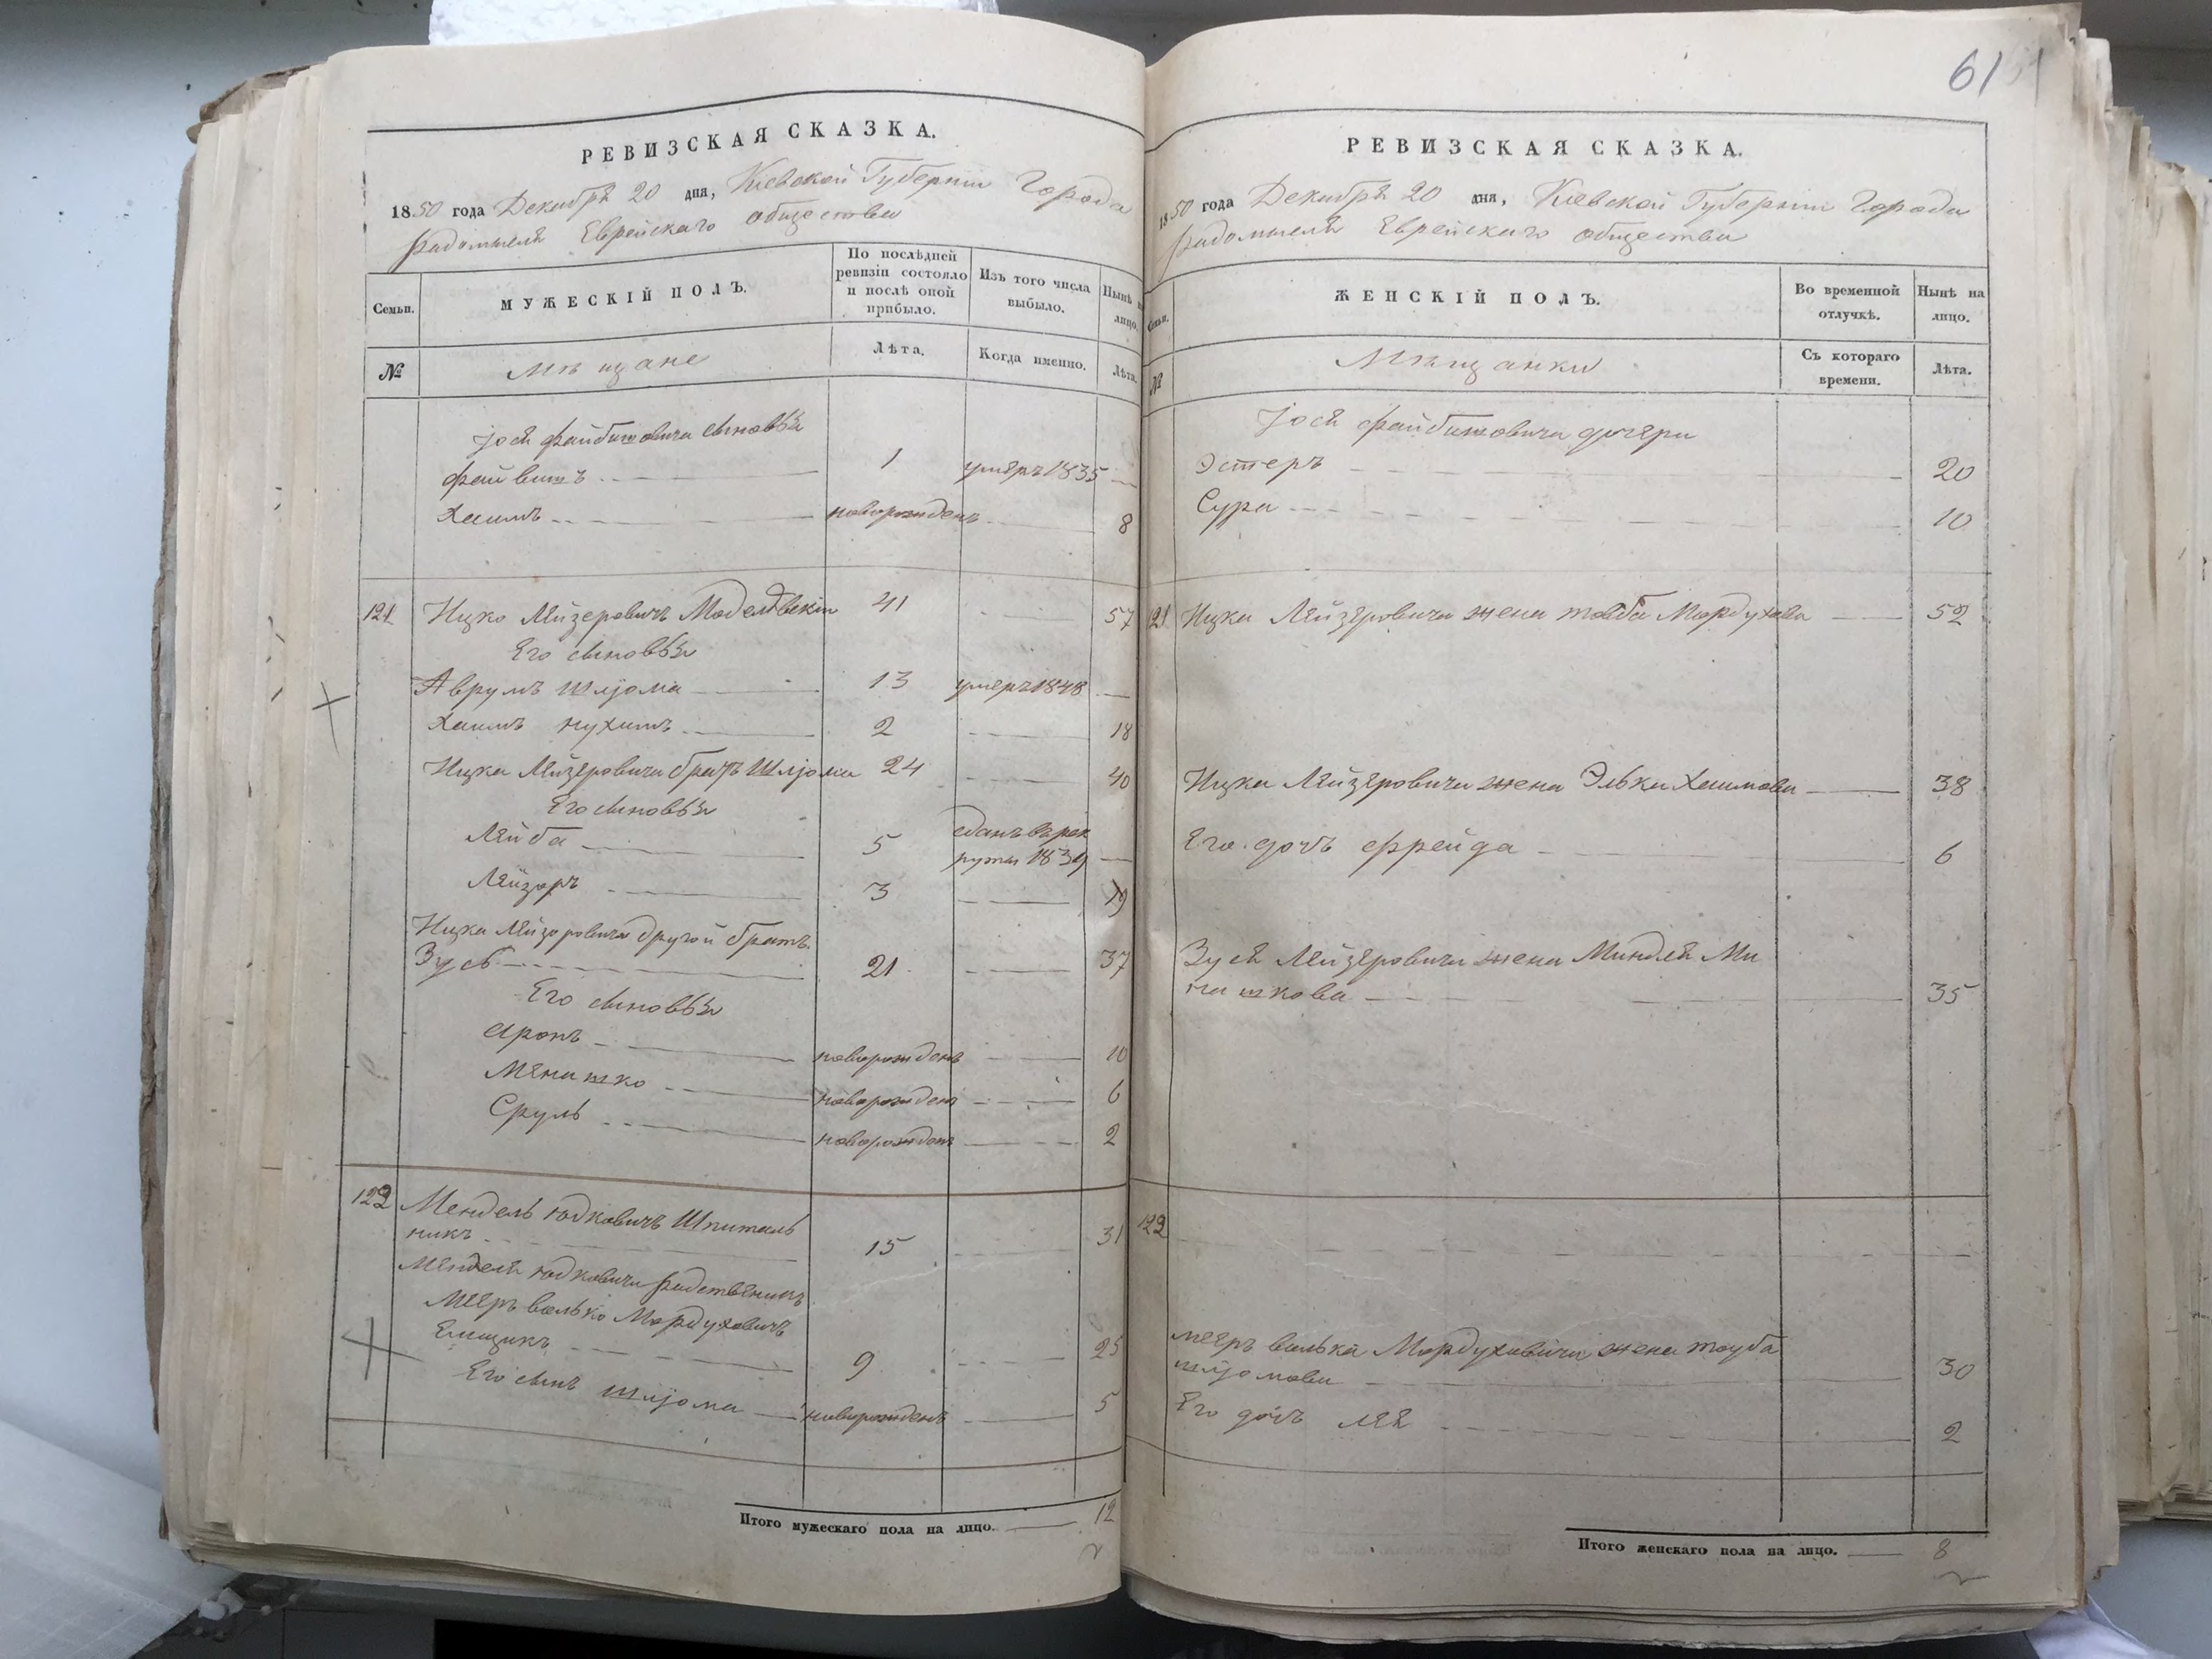 61
РЕВИЗСКАЯ СКАЗКА.
1850 года Декабря 20 дня, Кіевской Губерніи Города
Радомысля Еврейскаго общества
Семьи.
МУЖЕСКІЙ ПОЛЪ.
По послѣдней ревизіи состояло и послѣ оной прибыло.
Изъ того числа выбыло.
Нынѣ на лицо.
№
Мѣщане
Лѣта.
Когда именно.
Лѣта.
Іося Файбишовича сыновья
Файвишъ 1 умеръ 1835
Хаимъ новорожденъ 8
121 Ицко Лейзеровичъ 41 57
Его сыновья
Аврумъ Шліома 13 умеръ 1848
Хаимъ Нухимъ 2 18
Ицка Лейзеровича братъ Шліома 24 40
Его сыновья
Лейба 5 сданъ въ рек
руты 1839
Лейзоръ 3 19
Ицка Лейзоровича другой братъ
Зусь 21 37
Его сыновья
Аронъ новорожденъ 10
Менашко новорожденъ 6
Сруль новорожденъ 2
122 Мендель Юдковичъ Шпиталь
никъ 15 31
Менделя Юдковича радственикъ
Мееръ Валько Мордуховичъ
Емщикъ 9 25
Его сынъ Шліома новорожденъ 5
Итого мужескаго пола на лицо. 12
РЕВИЗСКАЯ СКАЗКА.
1850 года Декабря 20 дня, Кіевской Губерніи Города
Радомысля Еврейскаго общества
Семьи.
ЖЕНСКІЙ ПОЛЪ.
Во временной отлучкѣ.
Нынѣ на лицо.
№
Мѣщанки
Съ котораго времени.
Лѣта.
Іося Файбишовича дочери
Эстеръ 20
Сура 10
121 Ицка Лейзеровича жена Товба Мордухова 52
Ицка Лейзеровича жена Элька Хаимова 38
Его дочь Фрейда 6
Зуся Лейзеровича жена Миндля Ми
нашкова 35
122
Мееръ Валька Мордуховича жена Тоуба
Шліомова 30
Его дочь Лея 2
Итого женскаго пола на лицо. 8